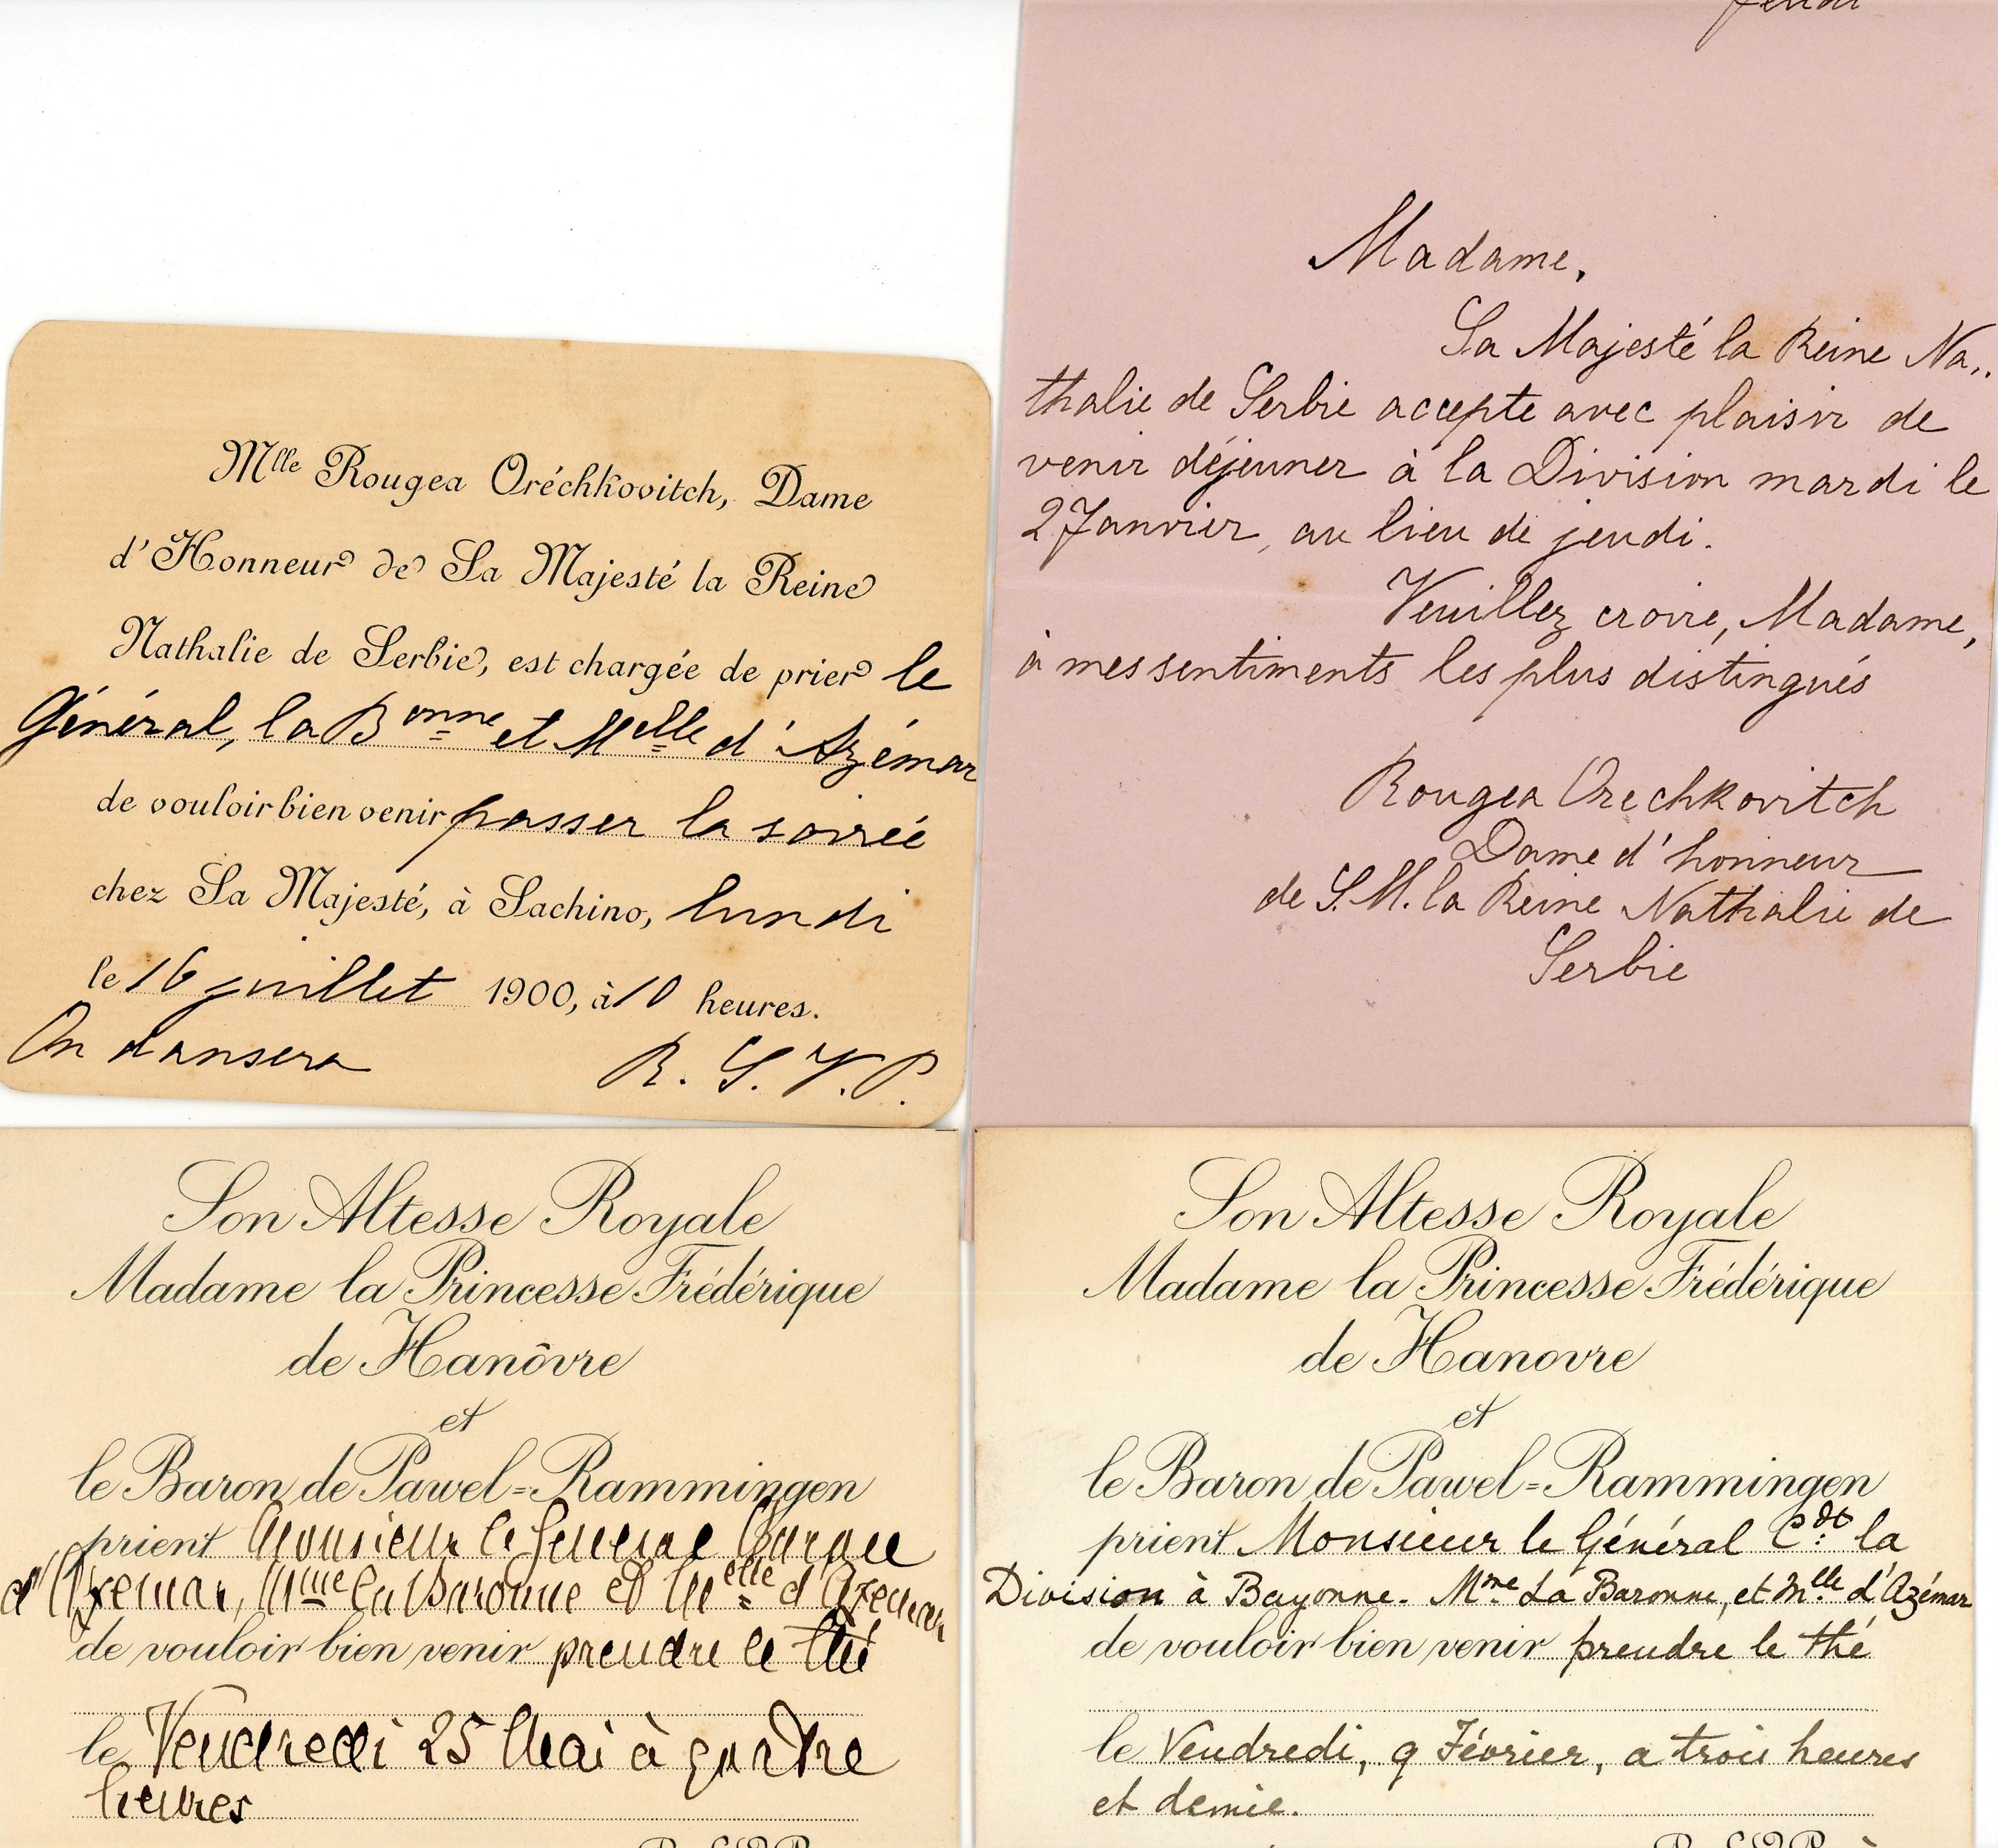 Mlle Rougea Oréchkovitch, Dame
d'Honneur de Sa Majesté la Reine
Nathalie de Serbie, est chargée de prier le
Général, la Bonne et Melle d'Azémar
de vouloir bien venir passer la soirée
chez Sa Majesté, à Sachino, lundi
le 16 juillet 1900, à 10 heures.
On dansera R. S. V. P.
Jeudi
Madame,
Sa Majesté la Reine Na..
thalie de Serbie accepte avec plaisir de
venir déjeuner à la Division mardi le
2 Janvier, au lieu de jeudi.
Veuillez croire, Madame,
à mes sentiments les plus distingués
Rougea Orechkovitch
Dame d'honneur
de S. M. la Reine Nathalie de
Serbie
Son Altesse Royale
Madame la Princesse Frédérique
de Hanôvre
et
le Baron de Pawel=Rammingen
prient Monsieur le General Baron
d'Azemar, Mme la Baronne et Melle d'Azemar
de vouloir bien venir prendre le thé
le Vendredi 25 Mai à quatre
heures
Son Altesse Royale
Madame la Princesse Frédérique
de Hanovre
et
le Baron de Pawel=Rammingen
prient Monsieur le Général Cdt. la
Division à Bayonne. Mme. La Baronne, et Mlle. d'Azémar
de vouloir bien venir prendre le thé
le Vendredi, 9 Février, a trois heures
et demie.